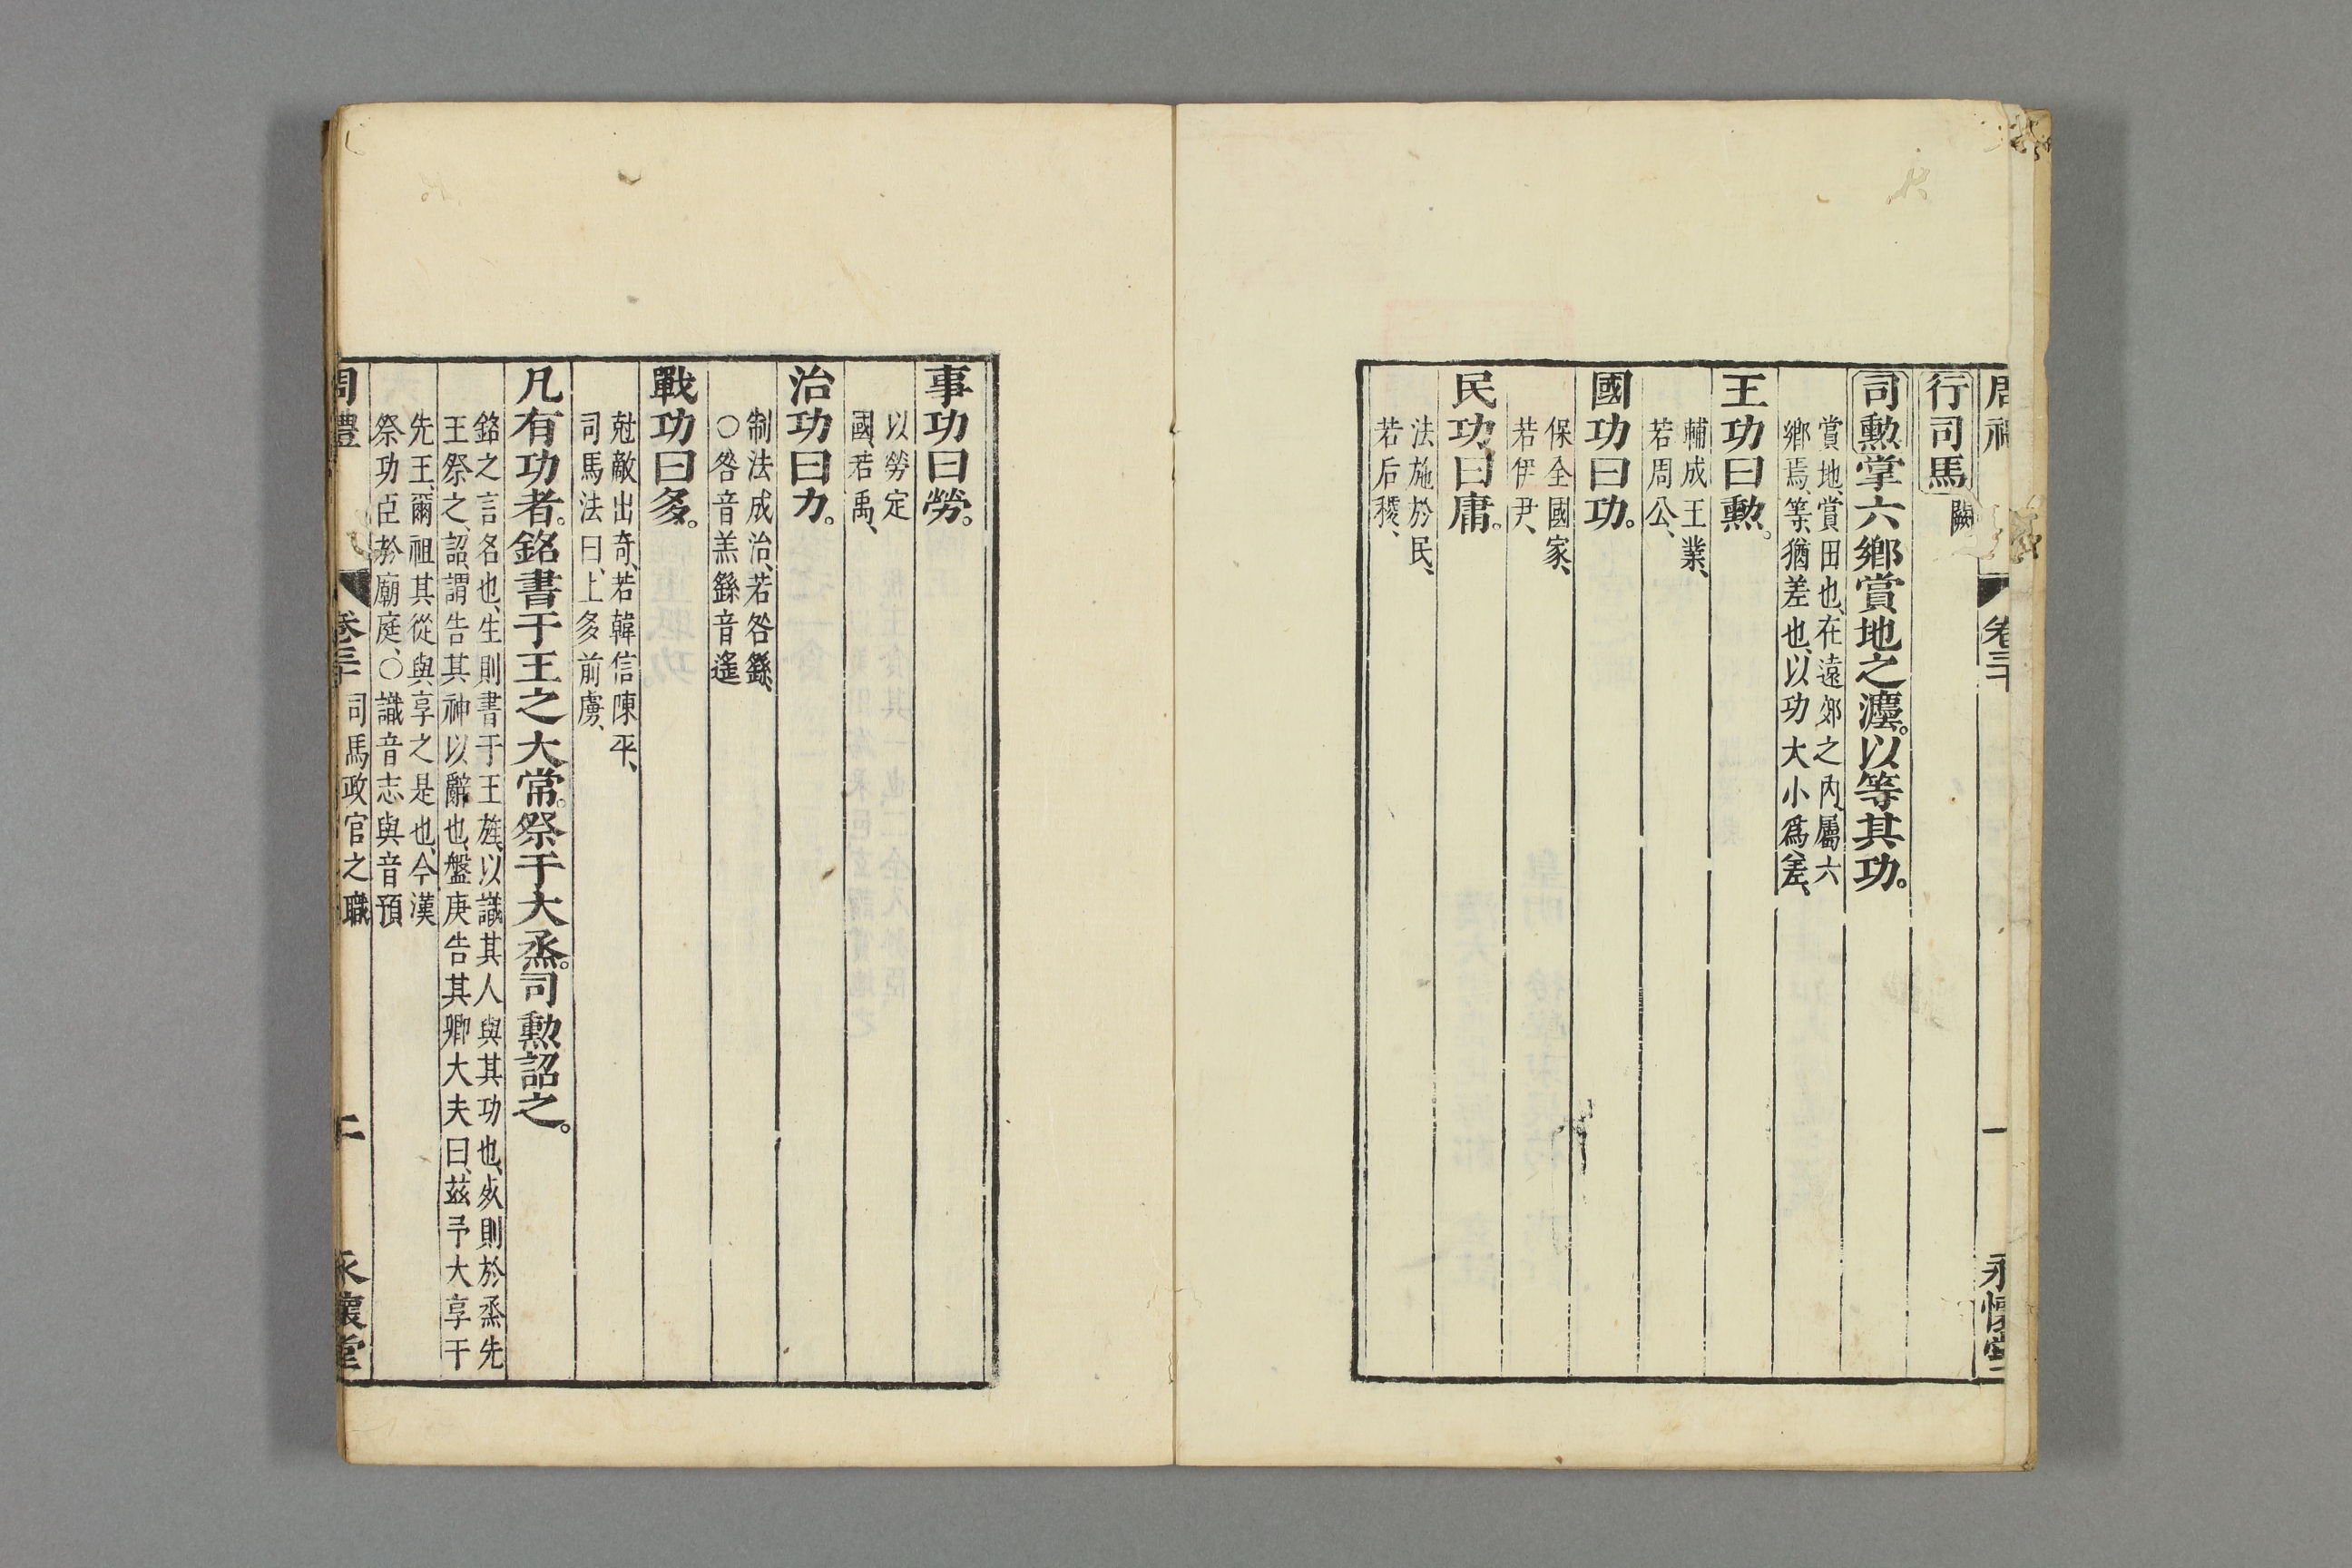 周禮 卷三十 一 永懷堂
行司馬 闕
司勲掌六鄉賞地之灋。以等其功。
賞地、賞田也、在遠郊之內、屬六
鄉焉、等、猶差也、以功大小爲差、
王功曰勲。
輔成王業、
若周公、
國功曰功。
保全國家、
若伊尹、
民功曰庸。
法施於民、
若后稷、
事功曰勞。
以勞定
國、若禹、
治功曰力。
制法成治、若咎繇、
○咎音羔繇音遙
戰功曰多。
尅敵出奇、若韓信陳平、
司馬法曰、上多前虜、
凡有功者。銘書于王之大常。祭于大烝。司勲詔之。
銘之言名也、生則書于王旌、以識其人與其功也、死則於烝先
王祭之、詔、謂告其神以辭也、盤庚告其卿大夫曰、茲予大享于
先王、爾祖其從與享之是也、今漢
祭功臣於廟庭、○識音志與音預
周禮 卷三十 司馬政官之職 二 永懷堂